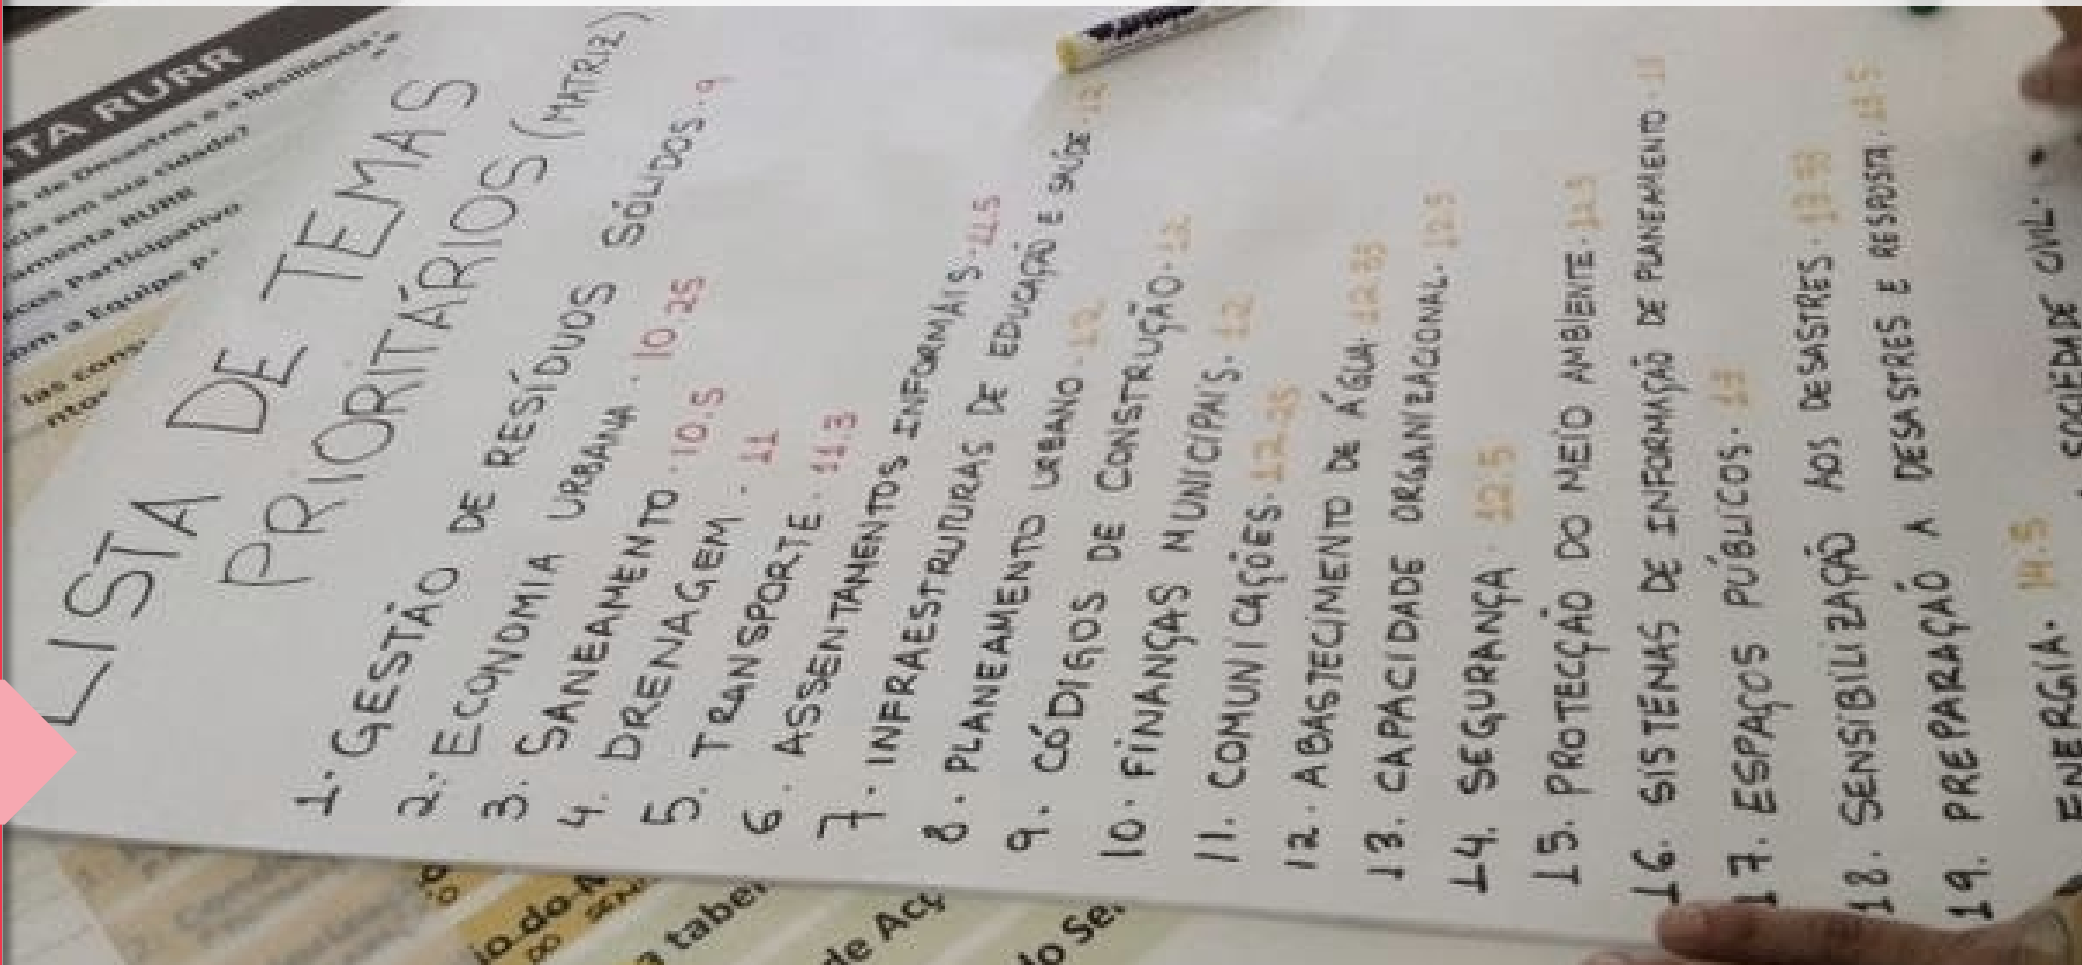 TA RURR
de Desastres e a Resiliência
cia em sua cidade?
ramenta RURR
scos Participativo
om a Equipe
las cons
nto
LISTA DE TEMAS
PRIORITÁRIOS (MATRIZ)
1. GESTÃO DE RESÍDUOS SÓLIDOS. 9
2. ECONOMIA URBANA. 10.25
3. SANEAMENTO. 10.5
4. DRENAGEM. 11
5. TRANSPORTE. 11.3
6. ASSENTAMENTOS INFORMAIS. 11.5
7. INFRAESTRUTURAS DE EDUCAÇÃO E SAÚDE. 12
8. PLANEAMENTO URBANO. 12
9. CÓDIGOS DE CONSTRUÇÃO. 12
10. FINANÇAS MUNICIPAIS. 12
11. COMUNICAÇÕES. 12.25
12. ABASTECIMENTO DE ÁGUA.
13. CAPACIDADE ORGANIZACIONAL. 12.5
14. SEGURANÇA. 12.5
15. PROTECÇÃO DO MEIO AMBIENTE. 12.5
16. SISTEMAS DE INFORMAÇÃO DE PLANEAMENTO.
17. ESPAÇOS PÚBLICOS. 13
18. SENSIBILIZAÇÃO AOS DESASTRES.
19. PREPARAÇÃO A DESASTRES E RESPOSTA.
ENERGIA. 14.5
SOCIEDADE CIVIL.
io do
a tabel
de Acç
do Se